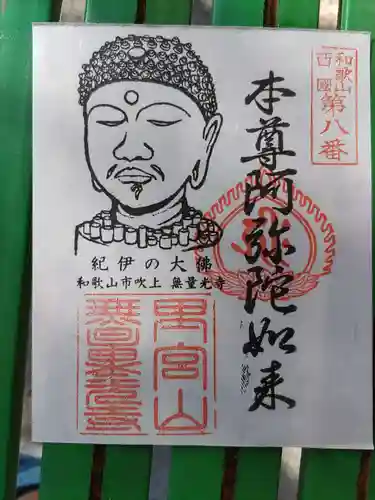 和歌山
西國
第八番
本尊阿弥陀如来
紀伊の大佛
和歌山市吹上 無量光寺